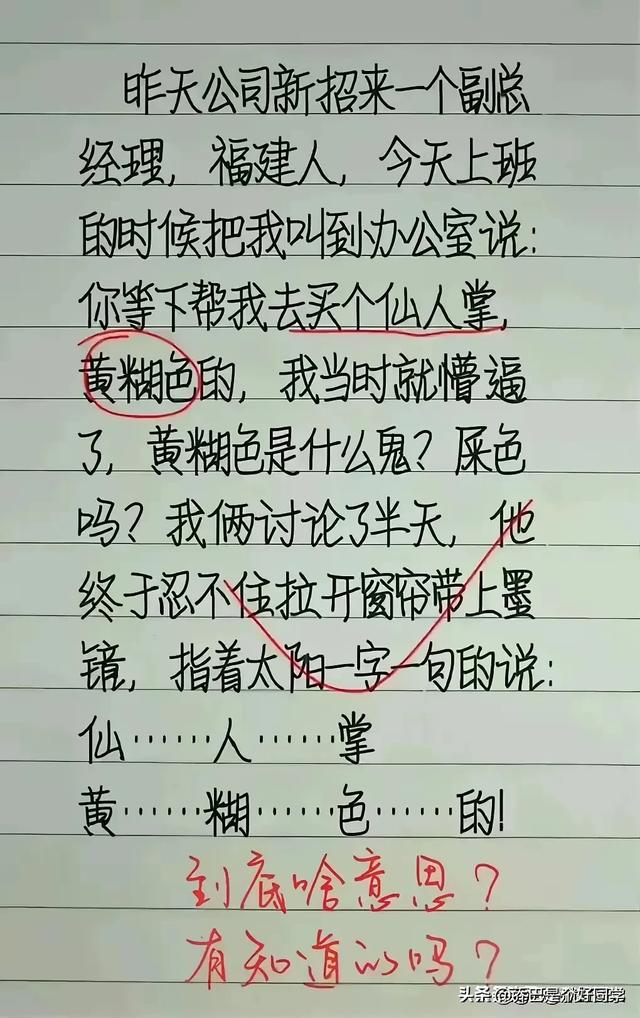 昨天公司新招来一个副总
经理，福建人，今天上班
的时候把我叫到办公室说：
你等下帮我去买个仙人掌，
黄糊色的，我当时就懵逼
了，黄糊色是什么鬼？屎色
吗？我俩讨论了半天，他
终于忍不住拉开窗帘带上墨
镜，指着太阳一字一句的说：
仙……人……掌
黄……糊……色……的！
到底啥意思？
有知道的吗？